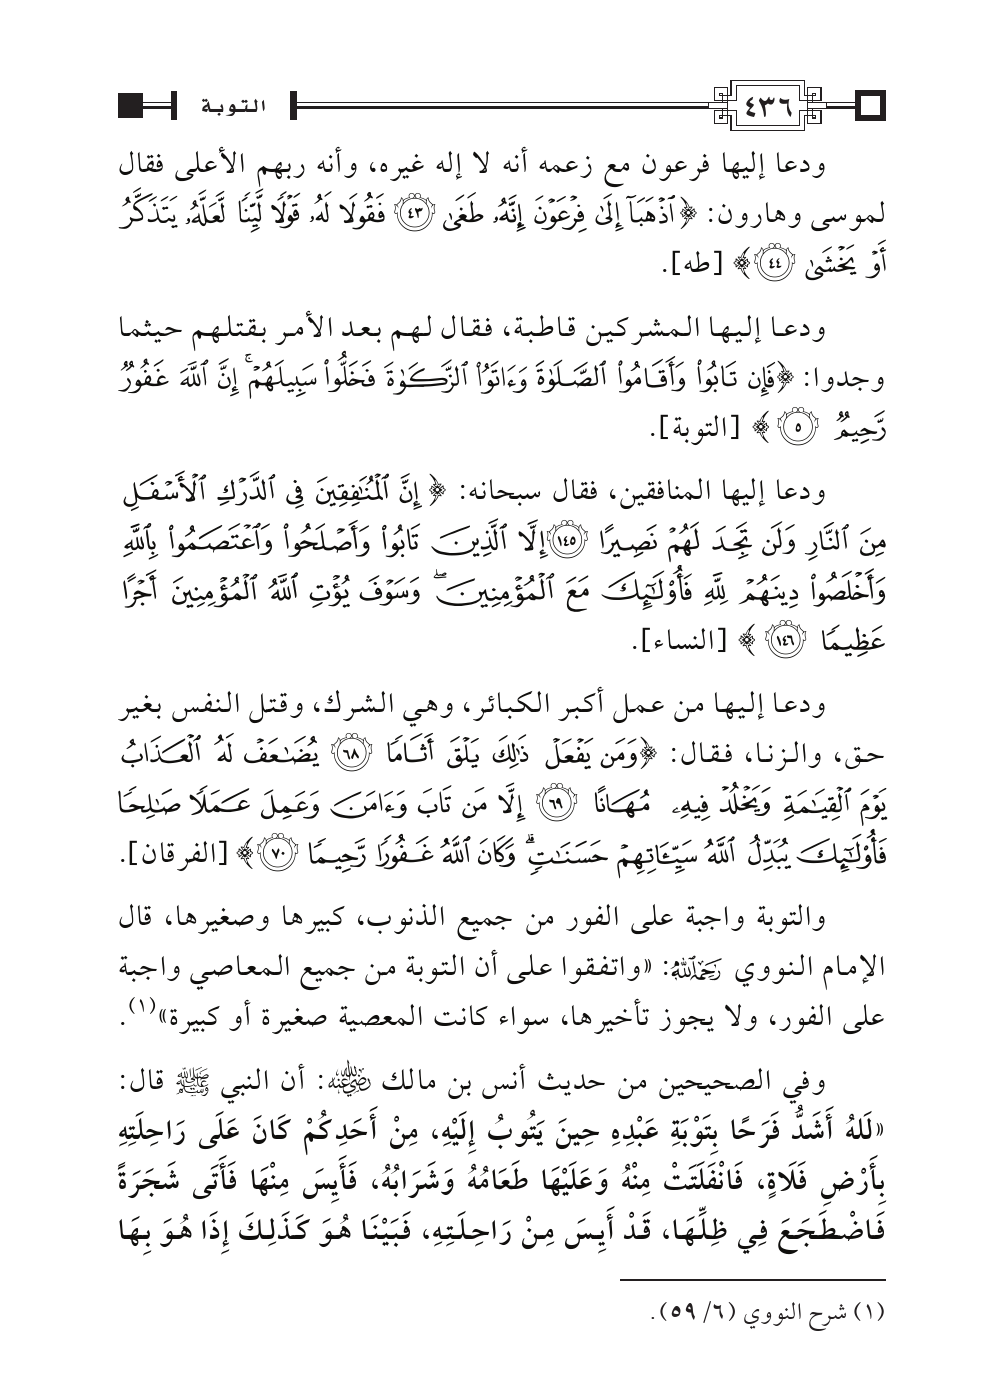 ٤٣٦ التوبة
ودعا إليها فرعون مع زعمه أنه لا إله غيره، وأنه ربهم الأعلى فقال
لموسى وهارون: ﴿ٱذْهَبَآ إِلَىٰ فِرْعَوْنَ إِنَّهُۥ طَغَىٰ ٤٣ فَقُولَا لَهُۥ قَوْلًا لَّيِّنًا لَّعَلَّهُۥ يَتَذَكَّرُ
أَوْ يَخْشَىٰ ٤٤﴾ [طه].
ودعا إليها المشركين قاطبة، فقال لهم بعد الأمر بقتلهم حيثما
وجدوا: ﴿فَإِن تَابُوا۟ وَأَقَامُوا۟ ٱلصَّلَوٰةَ وَءَاتَوُا۟ ٱلزَّكَوٰةَ فَخَلُّوا۟ سَبِيلَهُمْ ۚ إِنَّ ٱللَّهَ غَفُورٌ
رَّحِيمٌ ٥﴾ [التوبة].
ودعا إليها المنافقين، فقال سبحانه: ﴿إِنَّ ٱلْمُنَٰفِقِينَ فِى ٱلدَّرْكِ ٱلْأَسْفَلِ
مِنَ ٱلنَّارِ وَلَن تَجِدَ لَهُمْ نَصِيرًا ١٤٥ إِلَّا ٱلَّذِينَ تَابُوا۟ وَأَصْلَحُوا۟ وَٱعْتَصَمُوا۟ بِٱللَّهِ
وَأَخْلَصُوا۟ دِينَهُمْ لِلَّهِ فَأُو۟لَٰٓئِكَ مَعَ ٱلْمُؤْمِنِينَ ۖ وَسَوْفَ يُؤْتِ ٱللَّهُ ٱلْمُؤْمِنِينَ أَجْرًا
عَظِيمًا ١٤٦﴾ [النساء].
ودعا إليها من عمل أكبر الكبائر، وهي الشرك، وقتل النفس بغير
حق، والزنا، فقال: ﴿وَمَن يَفْعَلْ ذَٰلِكَ يَلْقَ أَثَامًا ٦٨ يُضَٰعَفْ لَهُ ٱلْعَذَابُ
يَوْمَ ٱلْقِيَٰمَةِ وَيَخْلُدْ فِيهِۦ مُهَانًا ٦٩ إِلَّا مَن تَابَ وَءَامَنَ وَعَمِلَ عَمَلًا صَٰلِحًا
فَأُو۟لَٰٓئِكَ يُبَدِّلُ ٱللَّهُ سَيِّـَٔاتِهِمْ حَسَنَٰتٍ ۗ وَكَانَ ٱللَّهُ غَفُورًا رَّحِيمًا ٧٠﴾ [الفرقان].
والتوبة واجبة على الفور من جميع الذنوب، كبيرها وصغيرها، قال
الإمام النووي رحمه الله: «واتفقوا على أن التوبة من جميع المعاصي واجبة
على الفور، ولا يجوز تأخيرها، سواء كانت المعصية صغيرة أو كبيرة»(١).
وفي الصحيحين من حديث أنس بن مالك رضي الله عنه: أن النبي ﷺ قال:
«لَلهُ أَشَدُّ فَرَحًا بِتَوْبَةِ عَبْدِهِ حِينَ يَتُوبُ إِلَيْهِ، مِنْ أَحَدِكُمْ كَانَ عَلَى رَاحِلَتِهِ
بِأَرْضِ فَلَاةٍ، فَانْفَلَتَتْ مِنْهُ وَعَلَيْهَا طَعَامُهُ وَشَرَابُهُ، فَأَيِسَ مِنْهَا فَأَتَى شَجَرَةً
فَاضْطَجَعَ فِي ظِلِّهَا، قَدْ أَيِسَ مِنْ رَاحِلَتِهِ، فَبَيْنَا هُوَ كَذَلِكَ إِذَا هُوَ بِهَا
(١) شرح النووي (٦/ ٥٩).